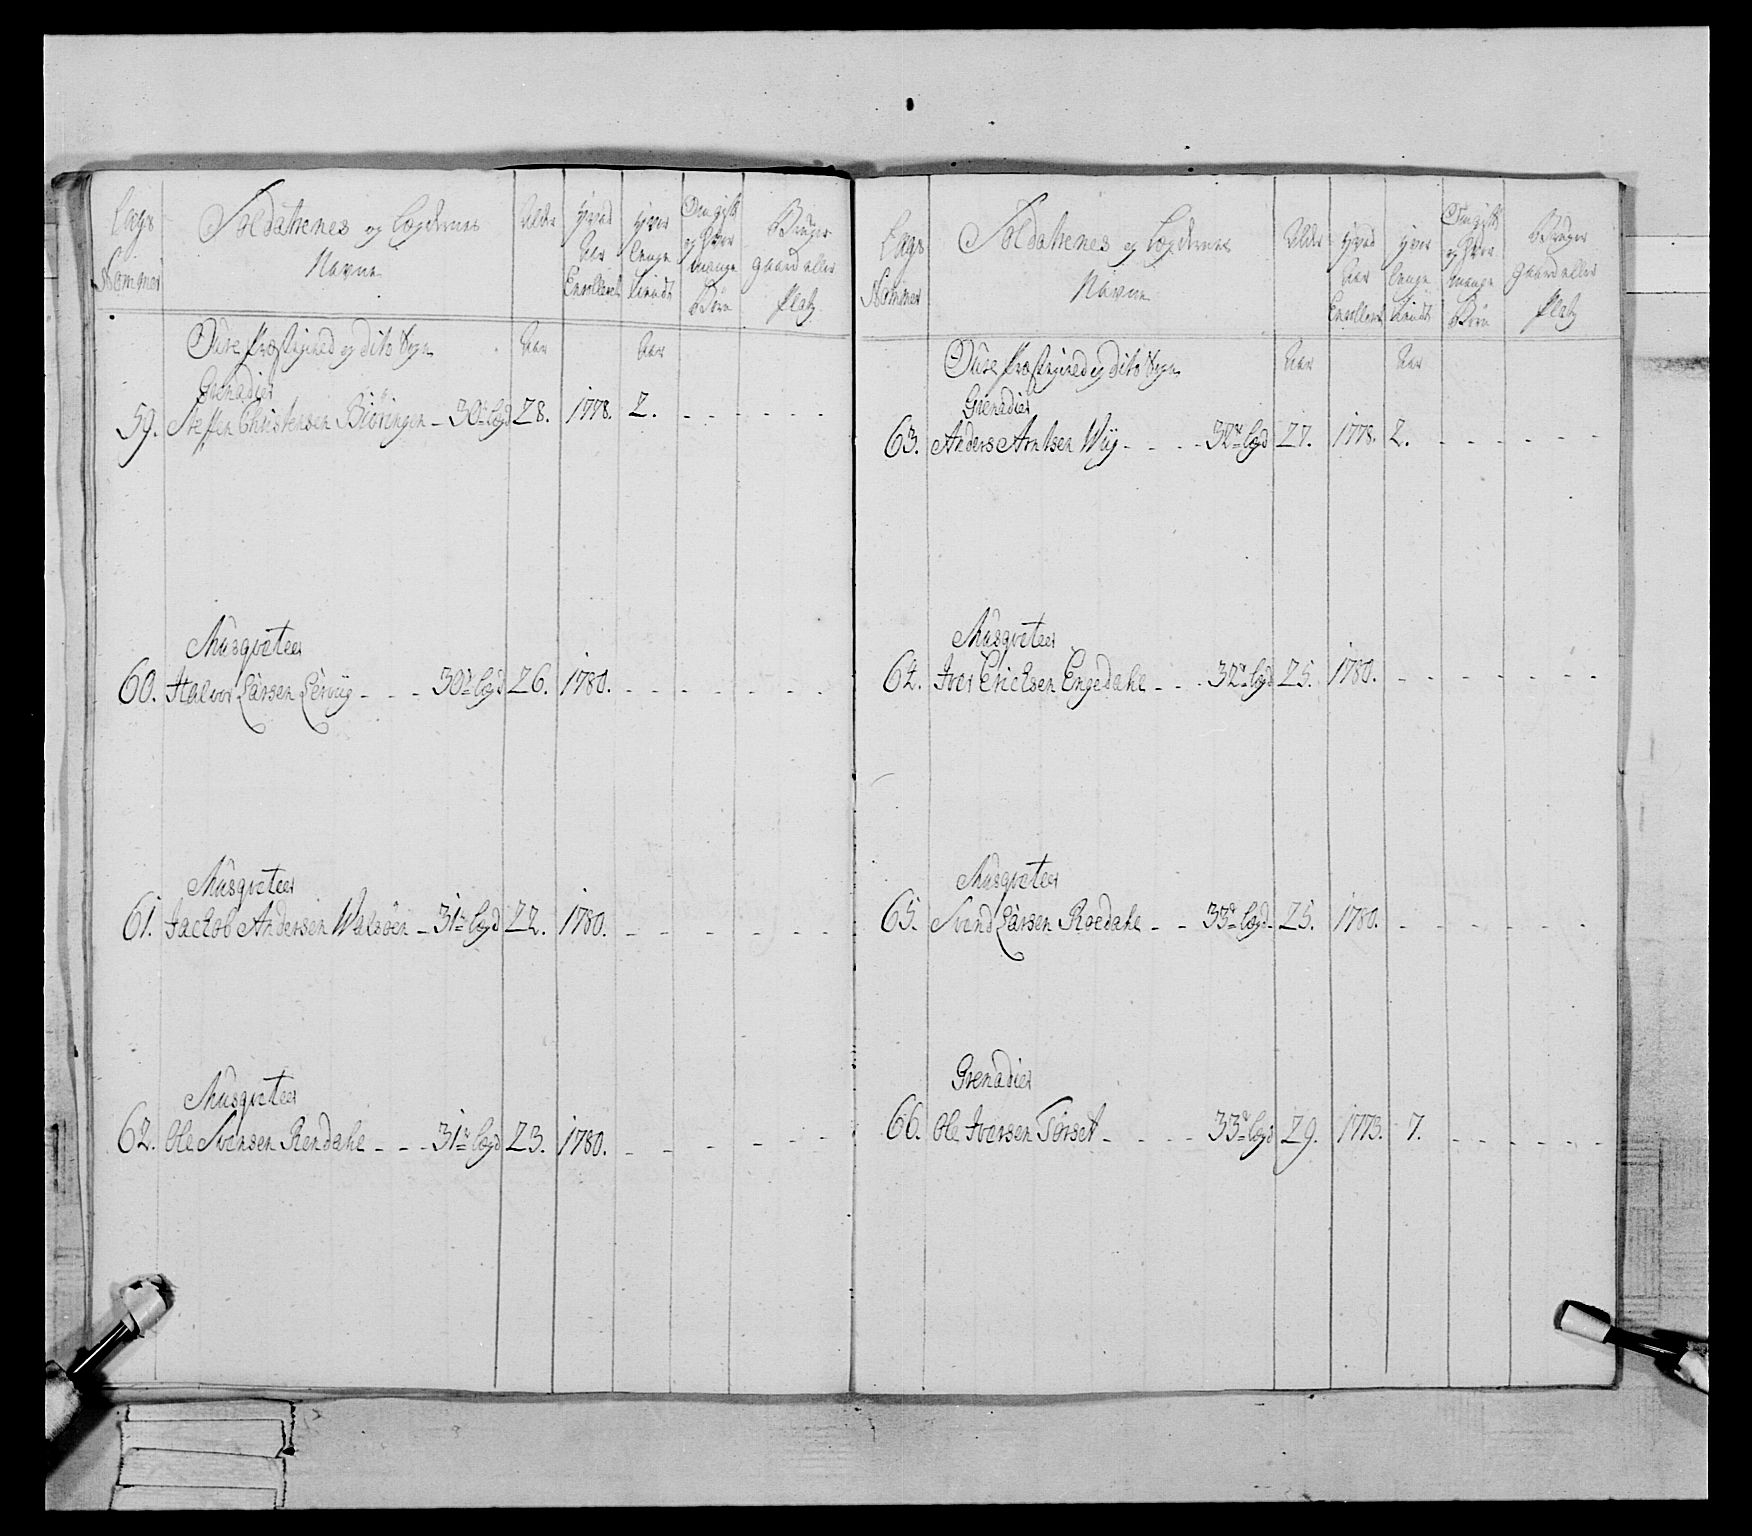 Lægs Nommer
Soldatenes og Lægdernes Navne
Alder
Hvad Aar Enrolleret
Hvor lenge tient
Om gift og Hvor mange Børn
Bruger gaard eller Platz
Aure Præstegield og dito Sogn
Aar Aar
Grenadier
59. Steffen Christensen Biøringen - 30te Lægd 28. 1778. 2. - - - - - -
Musqveteer
60. Halvor Larsen Lervig - - - 30te Lægd 26. 1780. - - - - - -
Musqveteer
61. Jackob Andersen Walsøen - 31te Lægd 22. 1780. - - - - - -
Musqveteer
62. Ole Svensen Rendahl - - - 31te Lægd 23. 1780. - - - - - -
Lægs Nommer
Soldatenes og Lægdernes Navne
Alder
Hvad Aar Enrolleret
Hvor lenge tient
Om gift og Hvor mange Børn
Bruger gaard eller Platz
Aure Præstegield og dito Sogn
Aar Aar
Grenadier
63. Anders Arntsen Wiig - - - - 32te Lægd 27. 1778. 2. - - - - - -
Musqveteer
64. Iver Ericksen Engedahl - - - 32te Lægd 25. 1780. - - - - - -
Musqveteer
65. Svend Larsen Roedahl - - 33te Lægd 25. 1780. - - - - - -
Grenadier
66. Ole Iversen Torset - - - - 33te Lægd 29. 1773. 7. - - - - - -